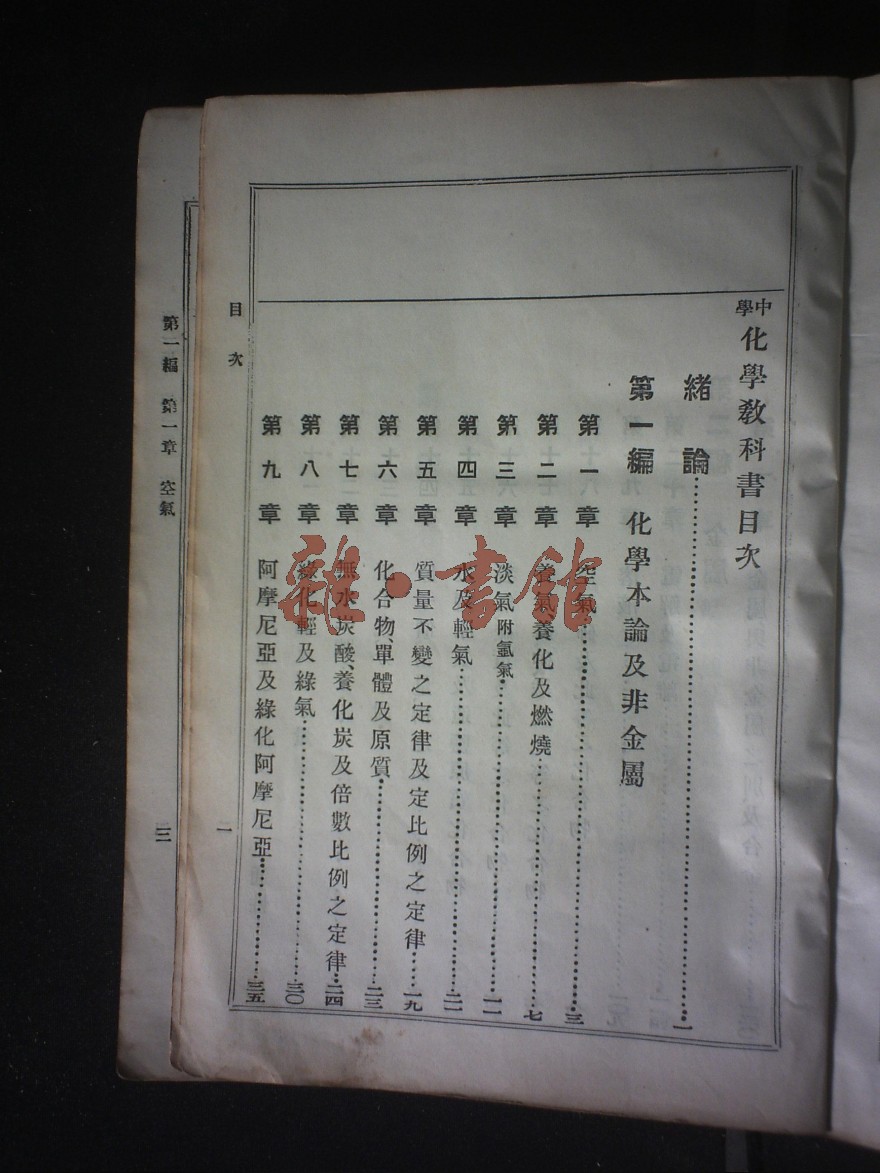 中學化學教科書目次
緒論……一
第一編 化學本論及非金屬
第一章 空氣……三
第二章 養氣、養化及燃燒……七
第三章 淡氣附氬氣……一一
第四章 水及輕氣……一二
第五章 質量不變之定律及定比例之定律……一九
第六章 化合物、單體及原質……二三
第七章 無水炭酸、養化炭及倍數比例之定律……二四
第八章 綠化輕及綠氣……三〇
第九章 阿摩尼亞及綠化阿摩尼亞……三五
目次
一
第一編 第一章 空氣
三
雜·書館